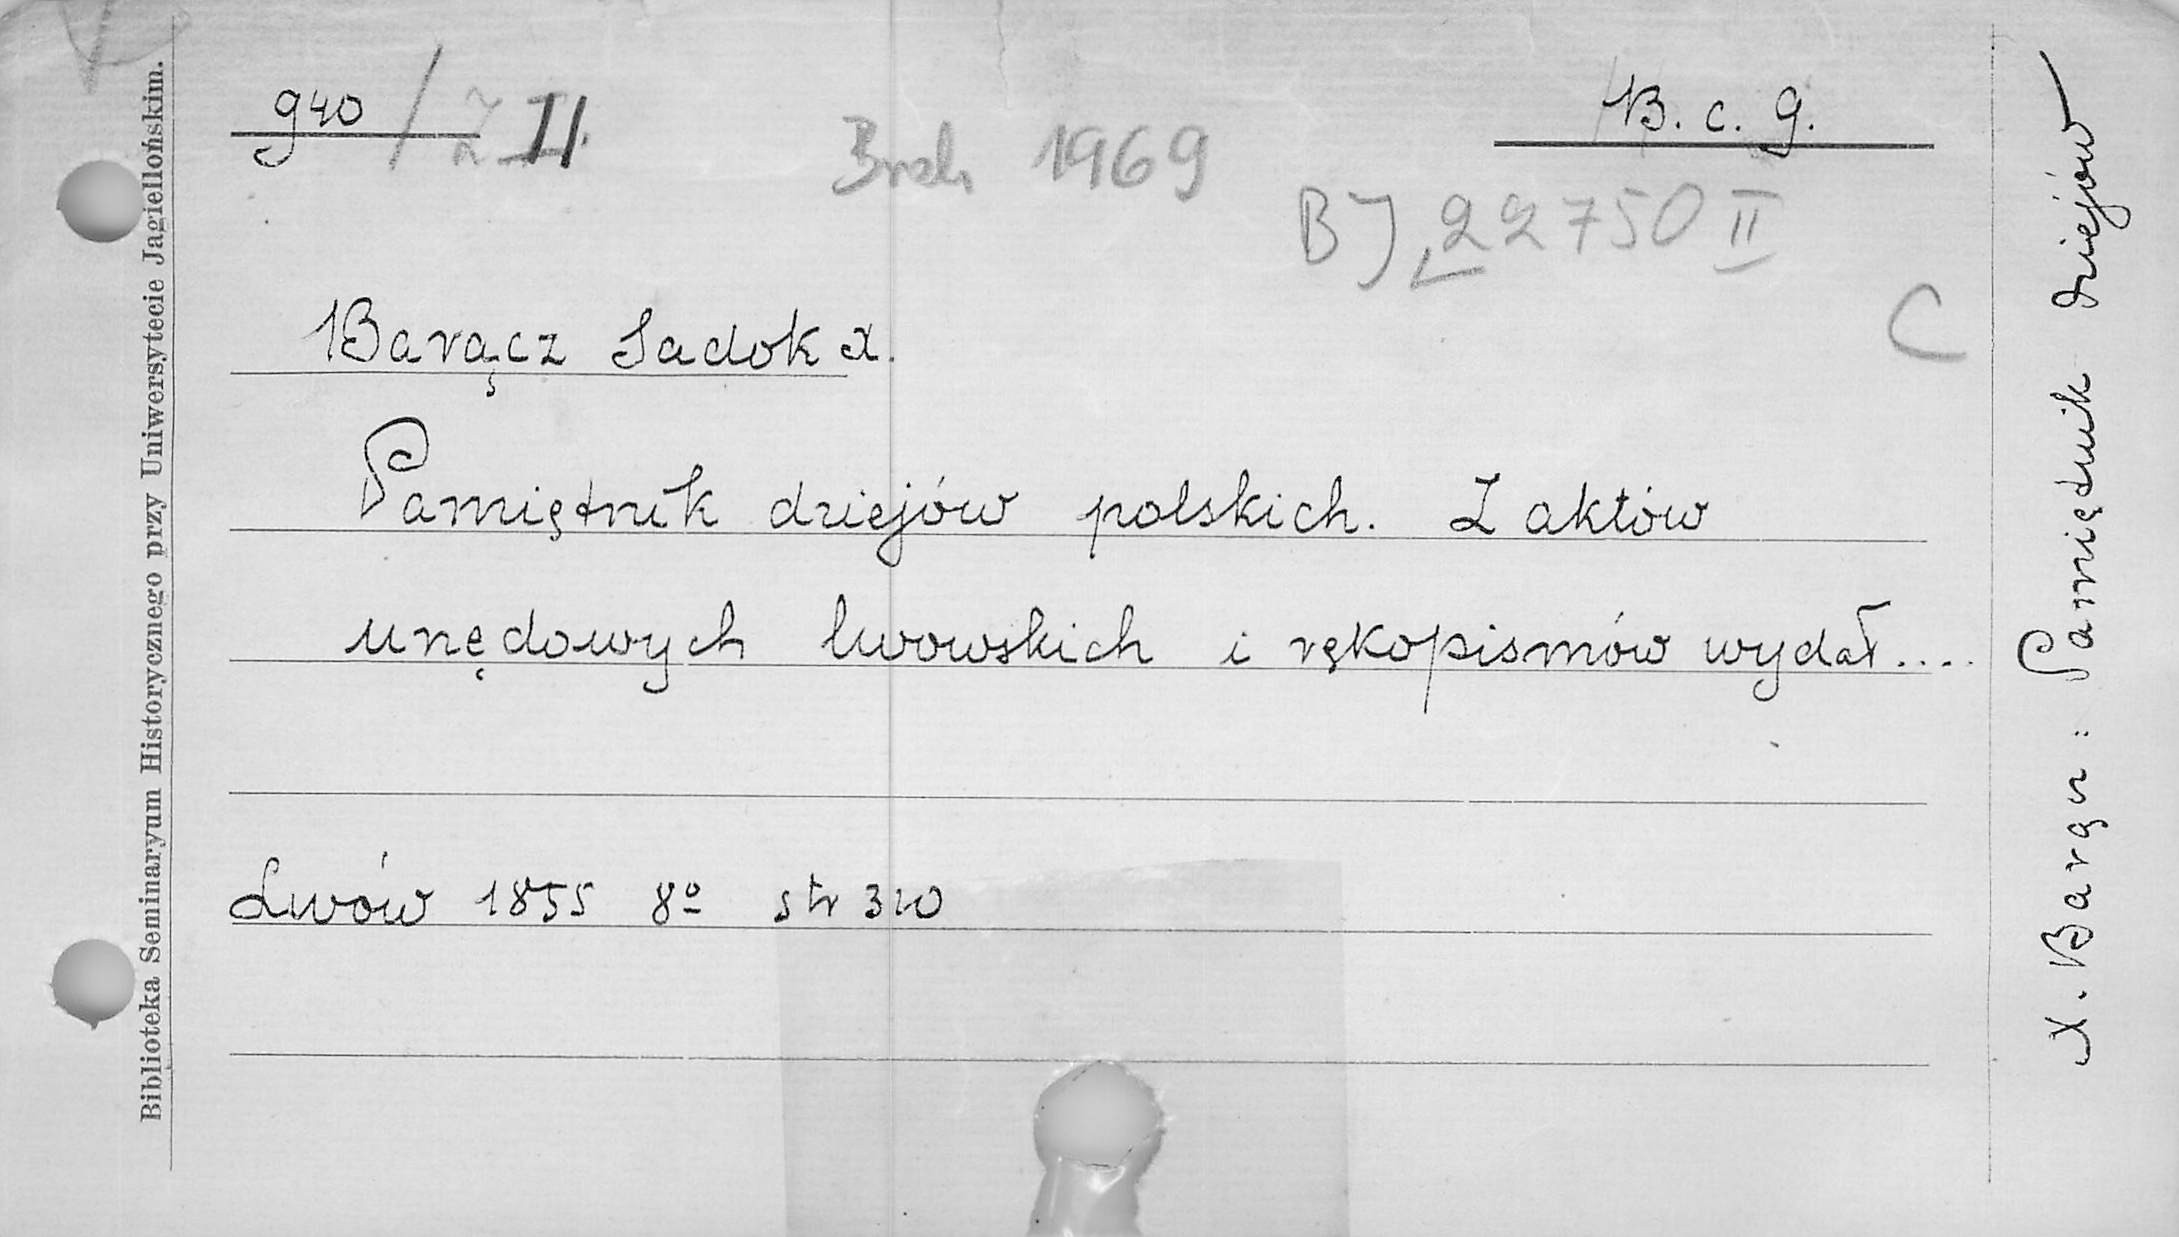 940 / II.
B. c. g.
Brak 1969
BJ 22750 II
C
Barącz Sadok X.
Pamiętnik dziejów polskich. Z aktów
urzędowych lwowskich i rękopismów wydał....
Lwów 1855 8º str 310
Biblioteka Seminaryum Historycznego przy Uniwersytecie Jagiellońskim.
X. Barącz : Pamiętnik dziejów